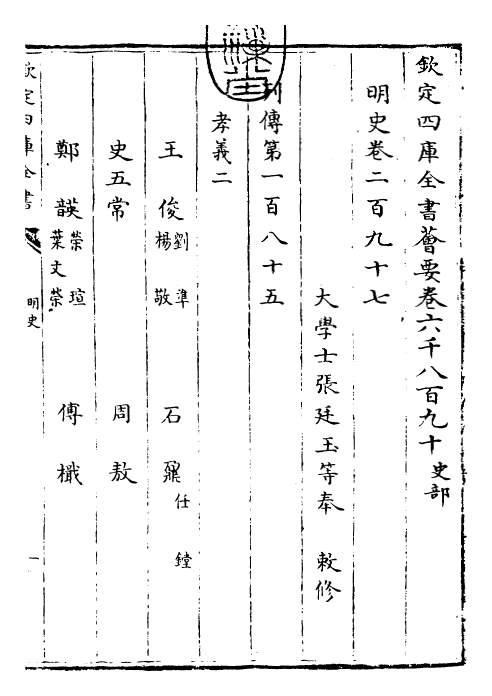 欽定四庫全書薈要卷六千八百九十 史部
明史卷二百九十七
大學士張廷玉等奉 敕修
列傳第一百八十五
孝義二
王俊 劉準 楊敬 石鼐 任鏜
史五常 周敖
鄭韺 榮瑄 葉文榮 傅檝
欽定四庫全書 明史 一